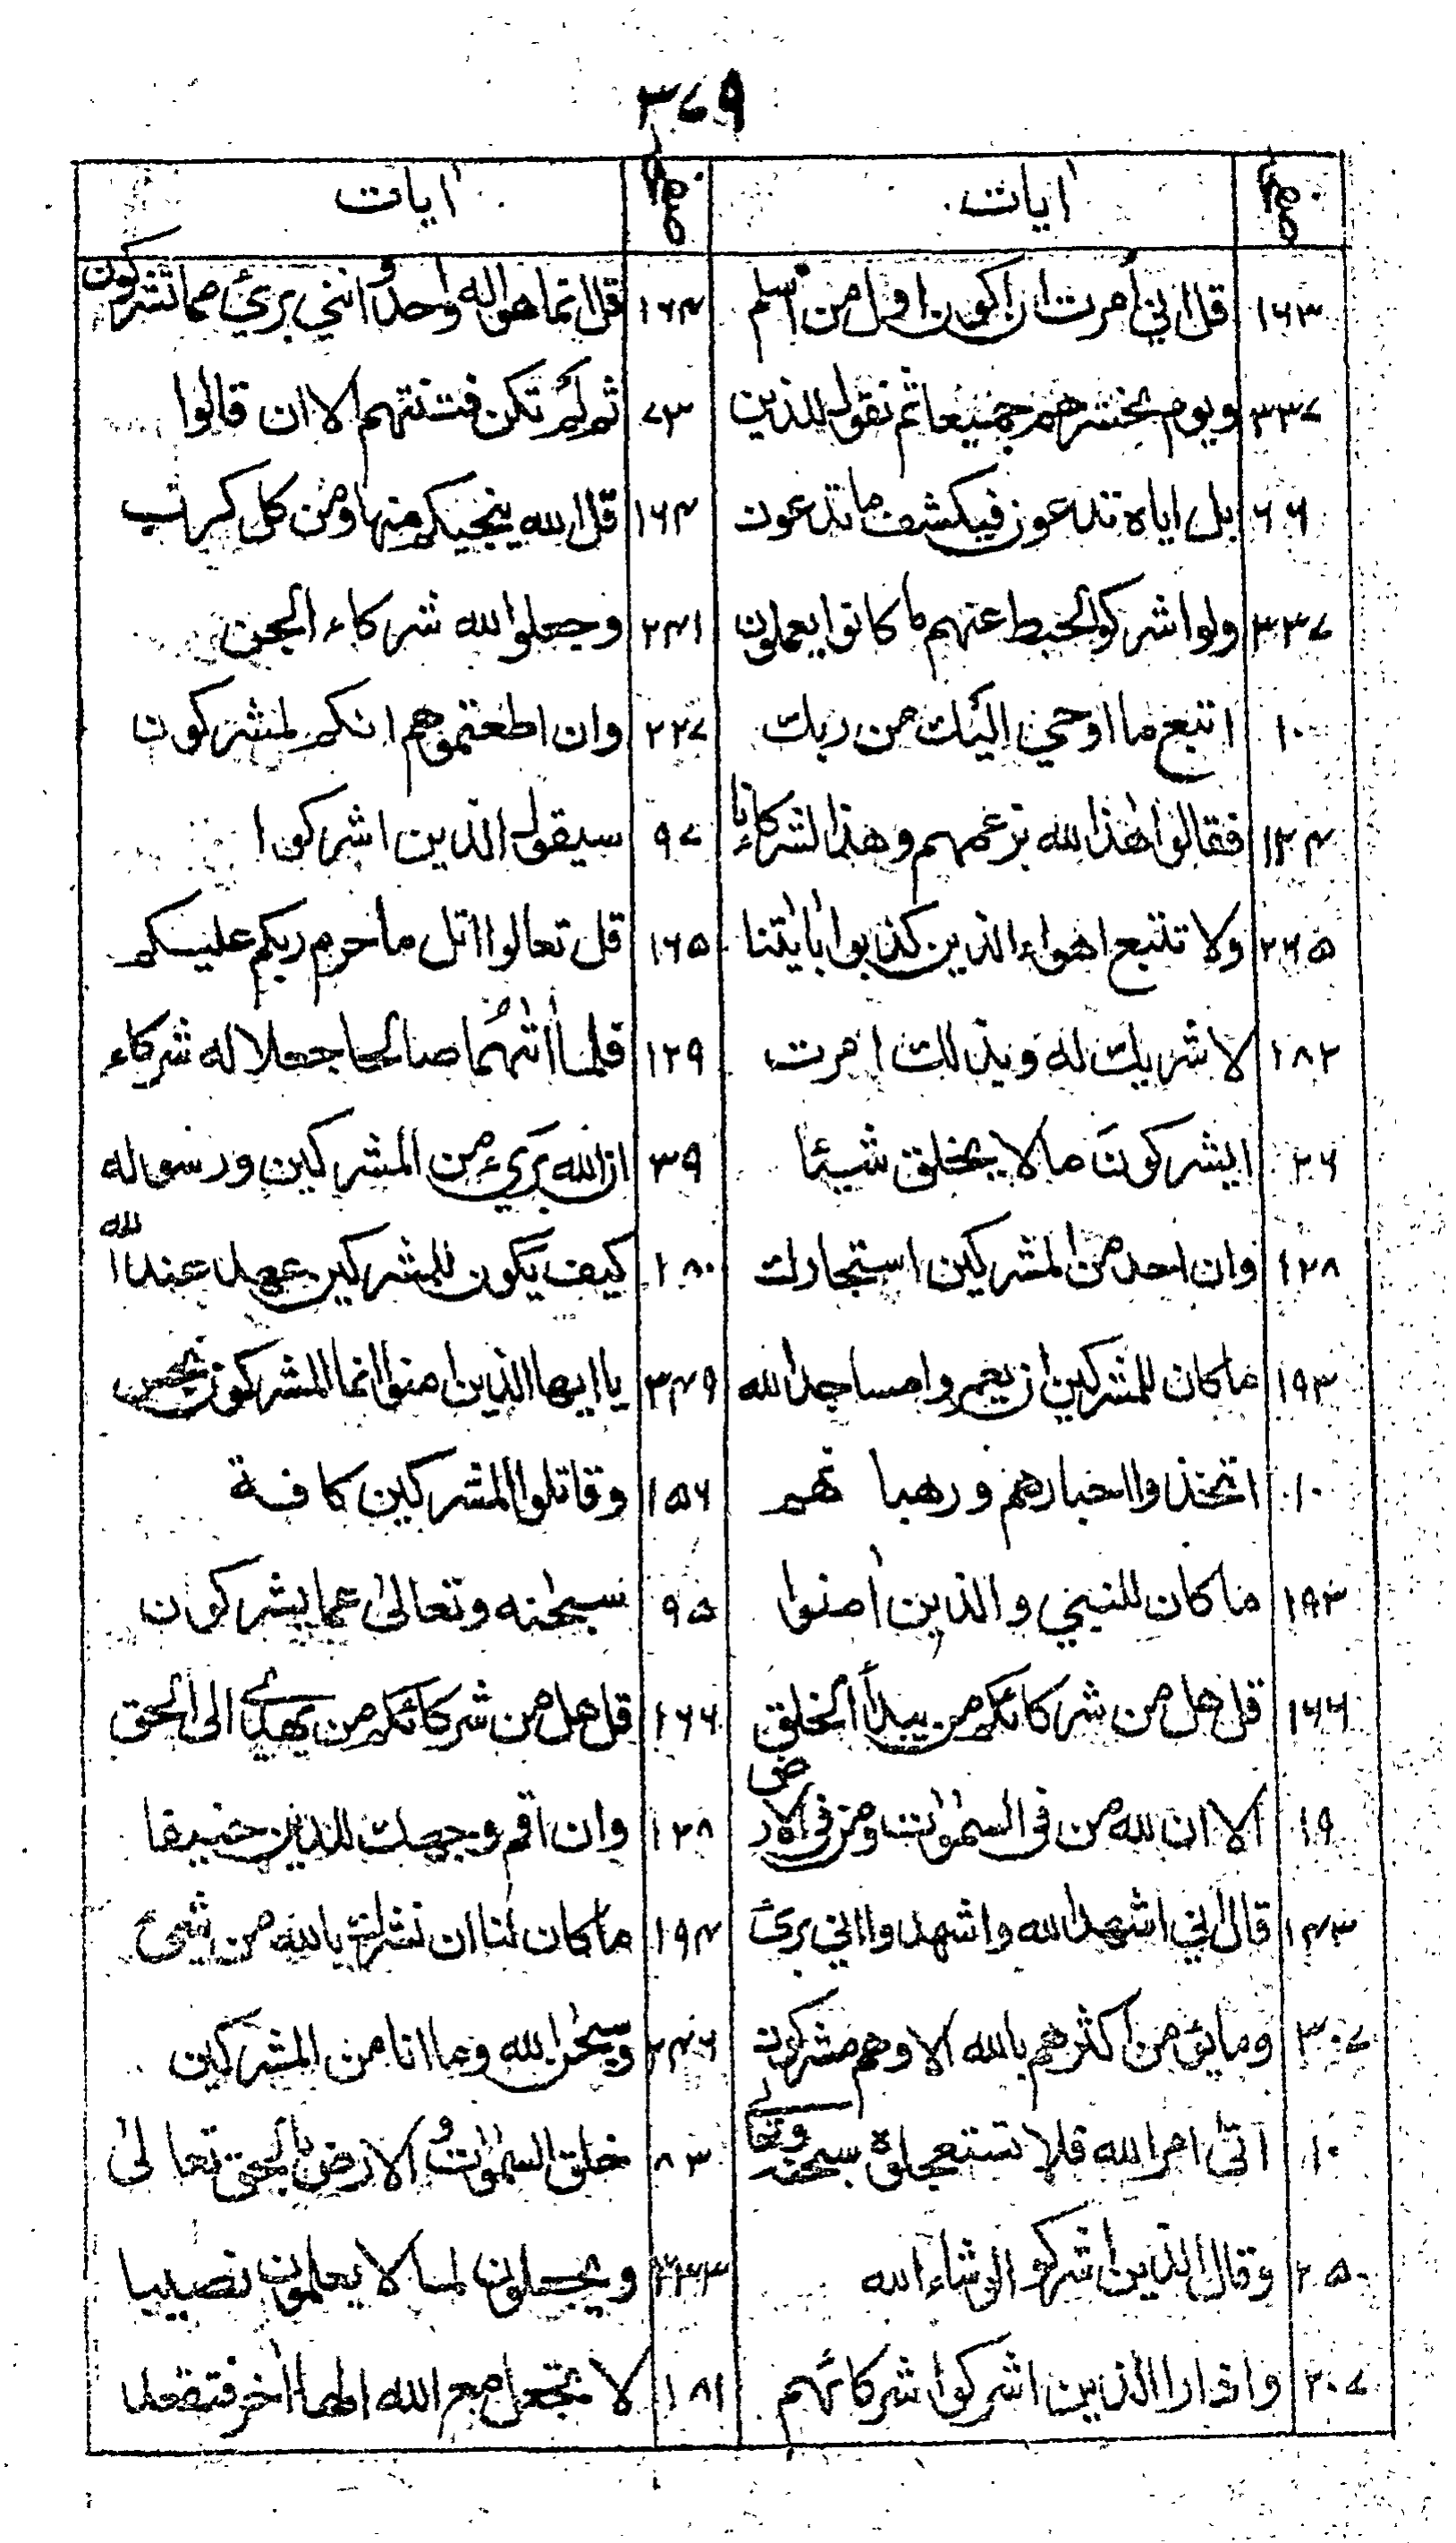 ۳۷۹
صفحه ایات صفحه ایات
۱۶۳ قل انی أمرت ان اکون اول من اسلم ۱۶۴ قل انما هو اله واحد وانني بريئ مما تشرکون
۳۳۷ ویوم نحشرهم جمیعا ثم نقول للذین ۷۳ ثم لم تکن فتنتهم الا ان قالوا
۶۶ بل ایاه تدعون فیکشف ما تدعون ۱۶۴ قل الله ینجیکم منها ومن کل کرب
۳۳۷ ولو اشرکوا لحبط عنهم ما کانوا یعملون ۲۴۱ وجعلوا لله شرکاء الجن
۱۰ اتبع ما اوحي الیك من ربك ۲۲۷ وان اطعتموهم انکم لمشرکون
۱۳۴ فقالوا هٰذا لله بزعمهم وهذا لشرکائنا ۹۷ سیقول الذین اشرکوا
۲۶۵ ولا تتبع اهواء الذین کذبوا بایٰتنا ۱۶۵ قل تعالوا اتل ما حرم ربکم علیکم
۱۸۲ لا شریك له وبذلك امرت ۱۲۹ فلما اٰتٰهُما صالحا جعلا له شرکاء
۲۶ ایشرکونَ ما لا یخلق شیئا ۳۹ ان الله بَريء من المشرکین ورسوله
۱۲۸ وان احد من المشرکین استجارك ۱۸۰ کیف یکون للمشرکین عهد عند الله
۱۹۳ ما کان للمشرکین ان یعمروا مساجد الله ۳۴۹ یا ایها الذین امنوا انما المشرکون نجس
۱۰ اتخذوا احبارهم ورهبا نهم ۱۵۶ وقاتلوا المشرکین کافة
۱۹۳ ما کان للنبي والذین اٰمنوا ۹۵ سبحٰنه وتعالیٰ عما یشرکون
۱۶۶ قل هل من شرکائکم من یبدأ الخلق ۱۶۶ قل هل من شرکائکم من یهدي الی الحق
۱۹ الا ان لله من فی السمٰوٰت ومن فی الارض ۱۲۸ وان اقم وجهك للدین حنیفا
۱۴۳ قال اني اشهد الله واشهدوا انی برئ ۱۹۴ ما کان لنا ان نشرك بالله من شیئ
۳۰۷ وما یؤمن اکثرهم بالله الا وهم مشرکون ۲۴۶ وسبحٰن الله وما انا من المشرکین
۱۰ اتٰی امر الله فلا تستعجلوه سبحٰنه وتعالی ۸۳ خلق السمٰوٰت والارض بالحق تعالیٰ
۲۵۰ وقال الذین اشرکوا لو شاء الله ۳۳۳ ویجعلون لما لا یعلمون نصیبا
۲۰۷ واذا را الذین اشرکوا شرکائهم ۱۸۱ لا تجعل مع الله الٰها اٰخر فتقعد